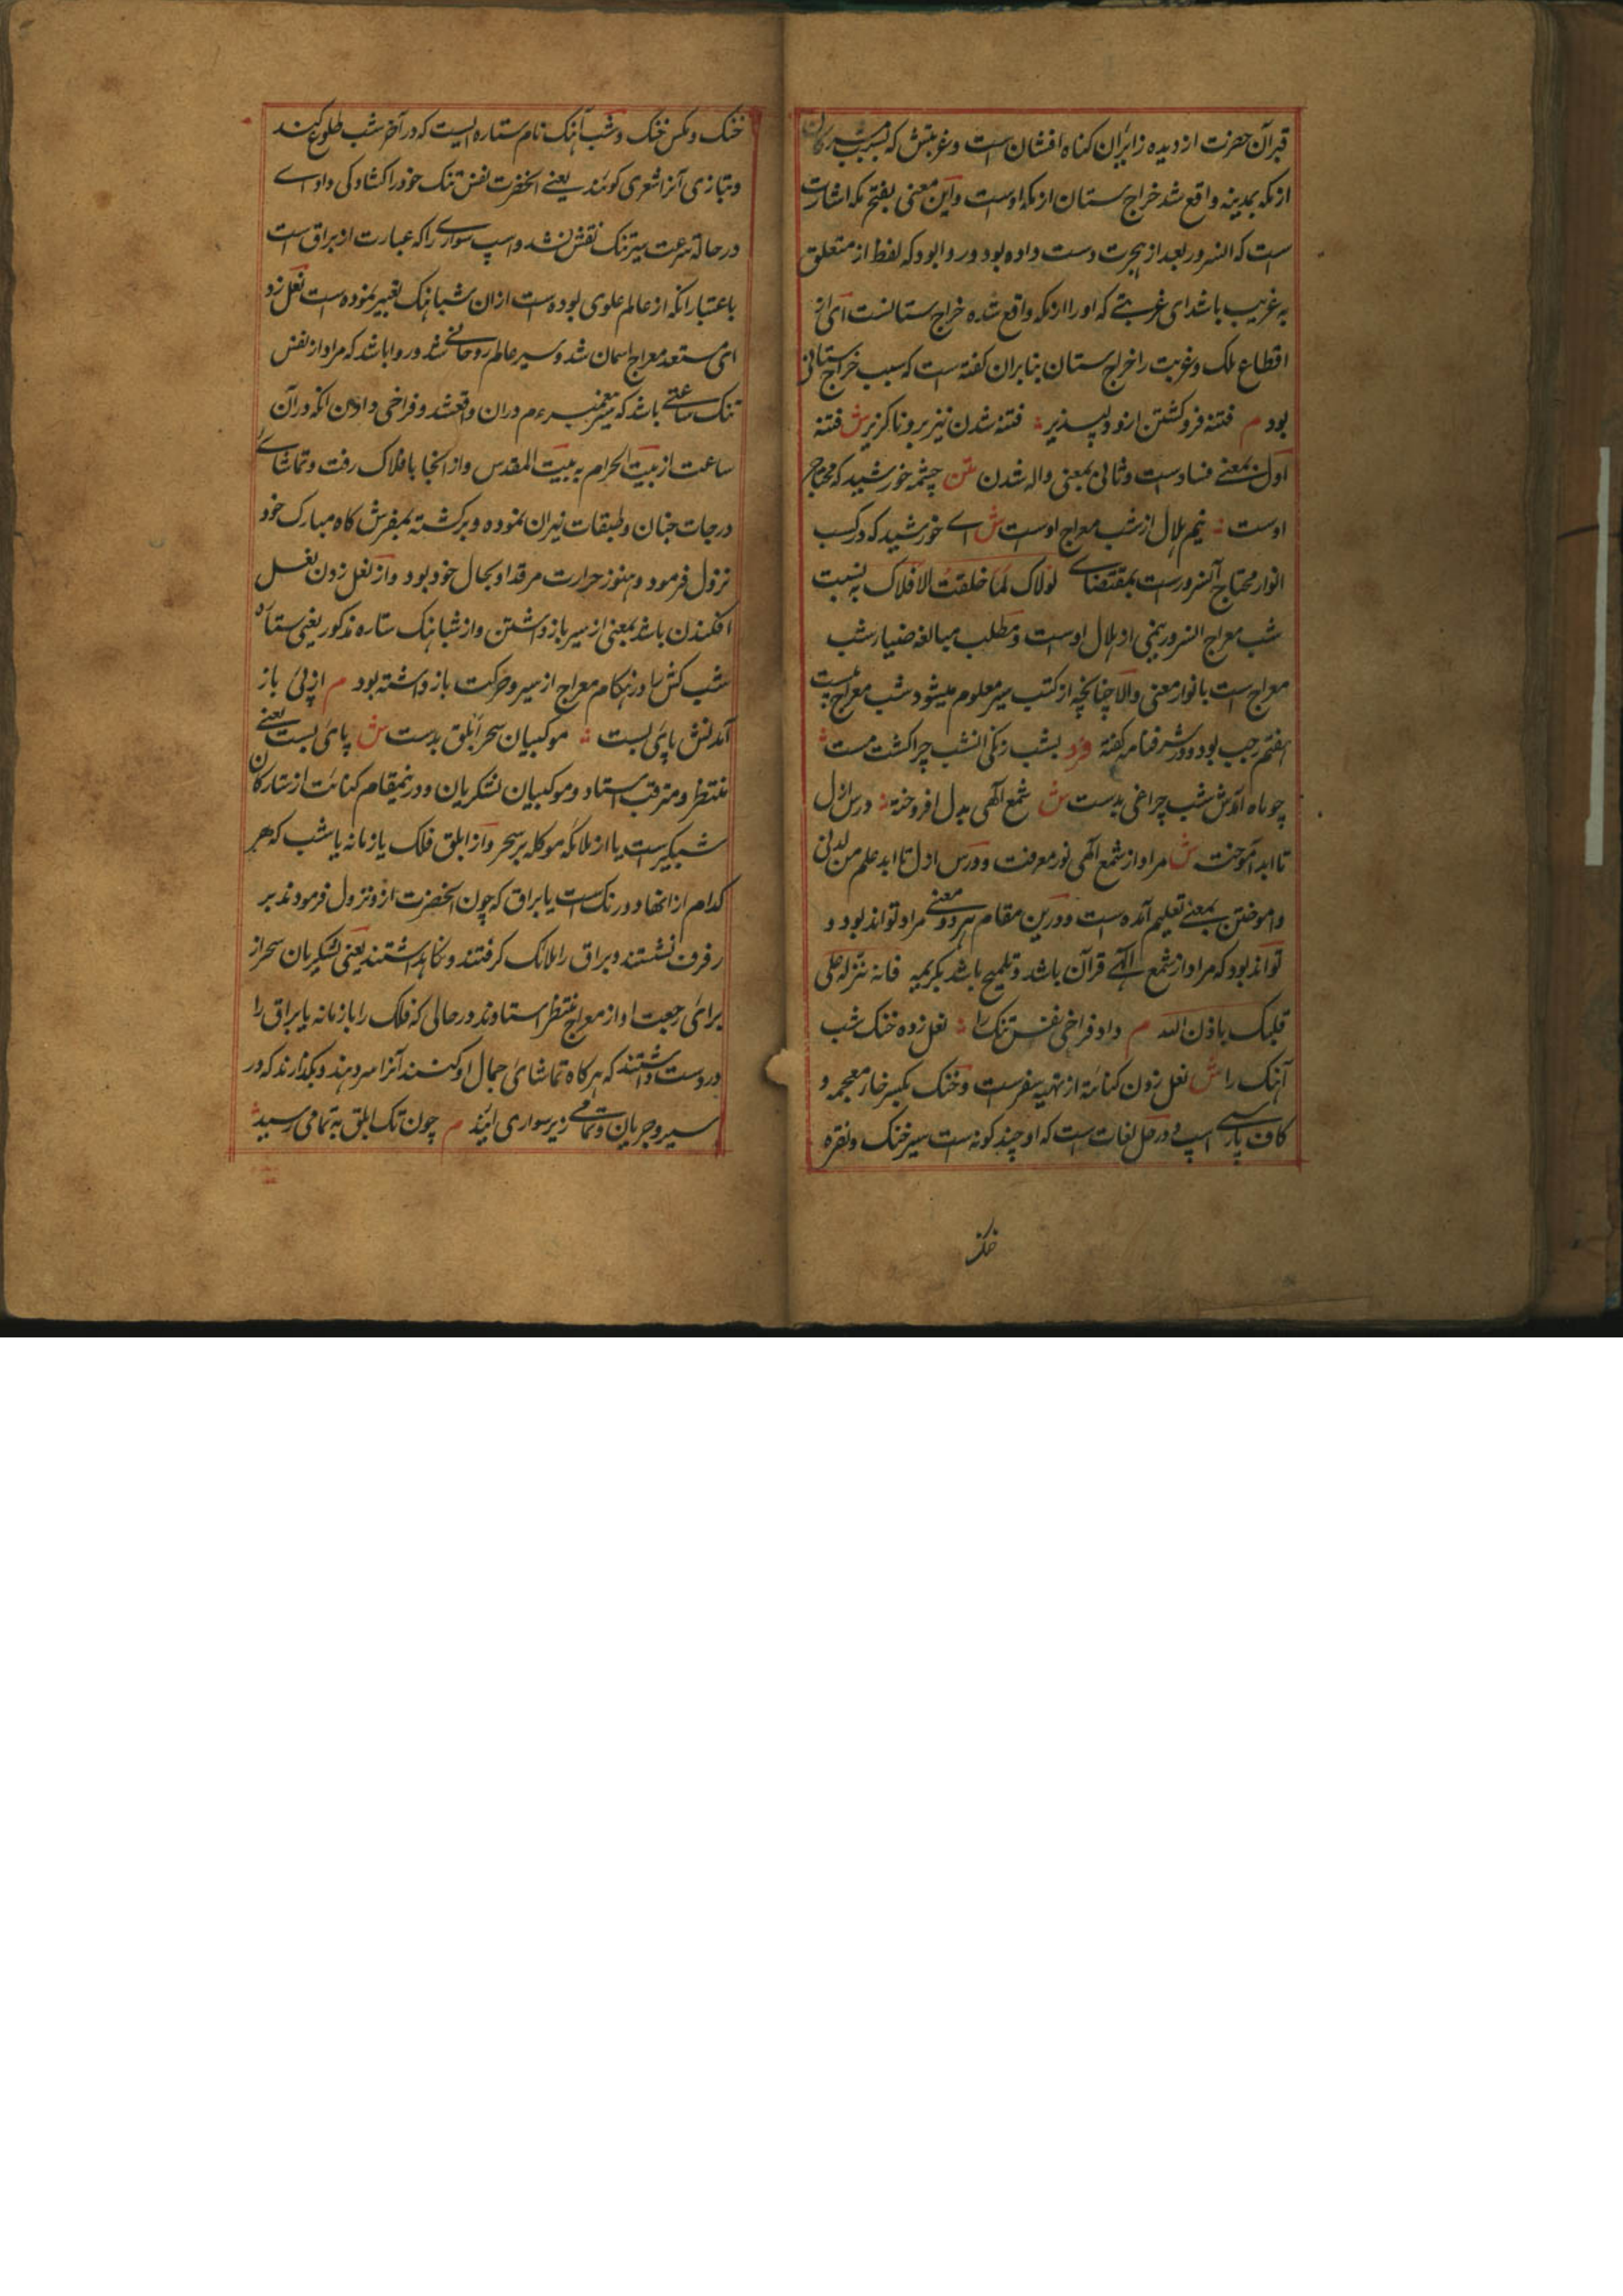 قبر آن حضرت از دیده زایران کناه افشان است و غربتش که بسبب مشرکان
از مکه بمدینه واقع شد خراج ستان از مکه اوست و این معنی بفتح مکه اشارت
است که السرور بعد از هجرت دست داده بود و روا بود که لفظ از متعلق
به غریب باشد ای غربتی که او را از مکه واقع شده خراج ستانست ای از
اقطاع ملک و غربت را خراج ستان بنابران کفته است که سبب خراج ستانی
بود م فتنه فرو کشتن ازو دلپذیر فتنه شدن نیز برو ناکزیر ش فتنه
اول بمعنی فساد ست و ثانی بمعنی واله شدن متن چشمه خورشید که محتاج
اوست نیم هلال از شب معراج اوست ش ای خورشید که در کسب
انوار محتاج آنسرور ست بمقتضای لولاک لما خلقت الافلاک به نسبت
شب معراج السرور نیمی از هلال اوست و مطلب مبالغه ضیاء شب
معراج است بانوار معنی والا چنانچه از کتب سیر معلوم میشود شب معراج بیست
هفتم رجب بود و در شرفنامه کفته فرد بشب زنکی انشب چرا کشت مست
چو ماه آمدش شب چراغی بدست ش شمع الهی بدل افروخته درس ازل
تا ابد آموخت ش مراد از شمع الهی نور معرفت و درس ازل تا ابد علم من لدنی
و اموختن بمعنی تعلیم آمده ست و درین مقام هر دو معنی مراد تواند بود و
تواند بود که مراد از شمع الهی قرآن باشد و تلمیح باشد بکریمه فانه نزله علی
قلبک باذن الله م داد فراخی نفس تنک را نعل زده خنک شب
آهنک را ش نعل زدن کنایة از تهیه سفرست و خنک بکسر خاء معجمه و
کاف پارسی اسپ و در حل لغات است که او چند کونه ست سیر خنک و نقره
خنک
خنک و مکس خنک و شب آهنک نام ستاره ایست که در آخر شب طلوع کند
و بتازی آنرا شعری کویند یعنی انحضرت نفس تنک خود را کشادکی داد ای
در حالة سرعت سیر تنک نفس نشد و اسپ سواری را که عبارت از براق است
باعتبار انکه از عالم علوی بوده ست ازان شباهنک تعبیر نموده ست نعل زد
ای مستعد معراج اسمان شد و سیر عالم روحانی شد و روا باشد که مراد از نفس
تنک ساعتی باشد که سیر پیغمبر م دران واقعشد و فراخی دادن انکه در آن
ساعت از بیت الحرام به بیت المقدس و از انجا بافلاک رفت و تماشای
درجات جنان و طبقات نیران نموده و برکشته بمفرش کاه مبارک خود
نزول فرمود و هنوز حرارت مرقد او بحال خود بود و از نعل زدن نعل
افکندن باشد بمعنی از سیر باز داشتن و از شباهنک ستاره مذکور یعنی ستاره
شب کش را در هنکام معراج از سیر و حرکت باز داشته بود م از پی باز
آمدنش پای بست موکبیان سحر ابلق بدست ش پای بست یعنی
منتظر و مترقب استاد و موکبیان لشکریان و درینمقام کنایت از ستارکان
شبکیر ست یا از ملائکه موکله بر سحر و از ابلق فلک یا زمانه یا شب که هر
کدام از انها دو رنک است یا براق که چون انحضرت ازو نزول فرمودند بر
رفرف نشستند و براق را ملائک کرفتند و نکاهداشتند یعنی لشکریان سحر از
برای رجعت او از معراج منتظر استادند در حالی که فلک را یا زمانه یا براق را
در دست داشتند که هرکاه تماشای جمال او کنند آنرا سر دهند و بکذارند که در
سیر و جریان و تمامی زیر سواری ایند م چون تک ابلق به تمامی رسید